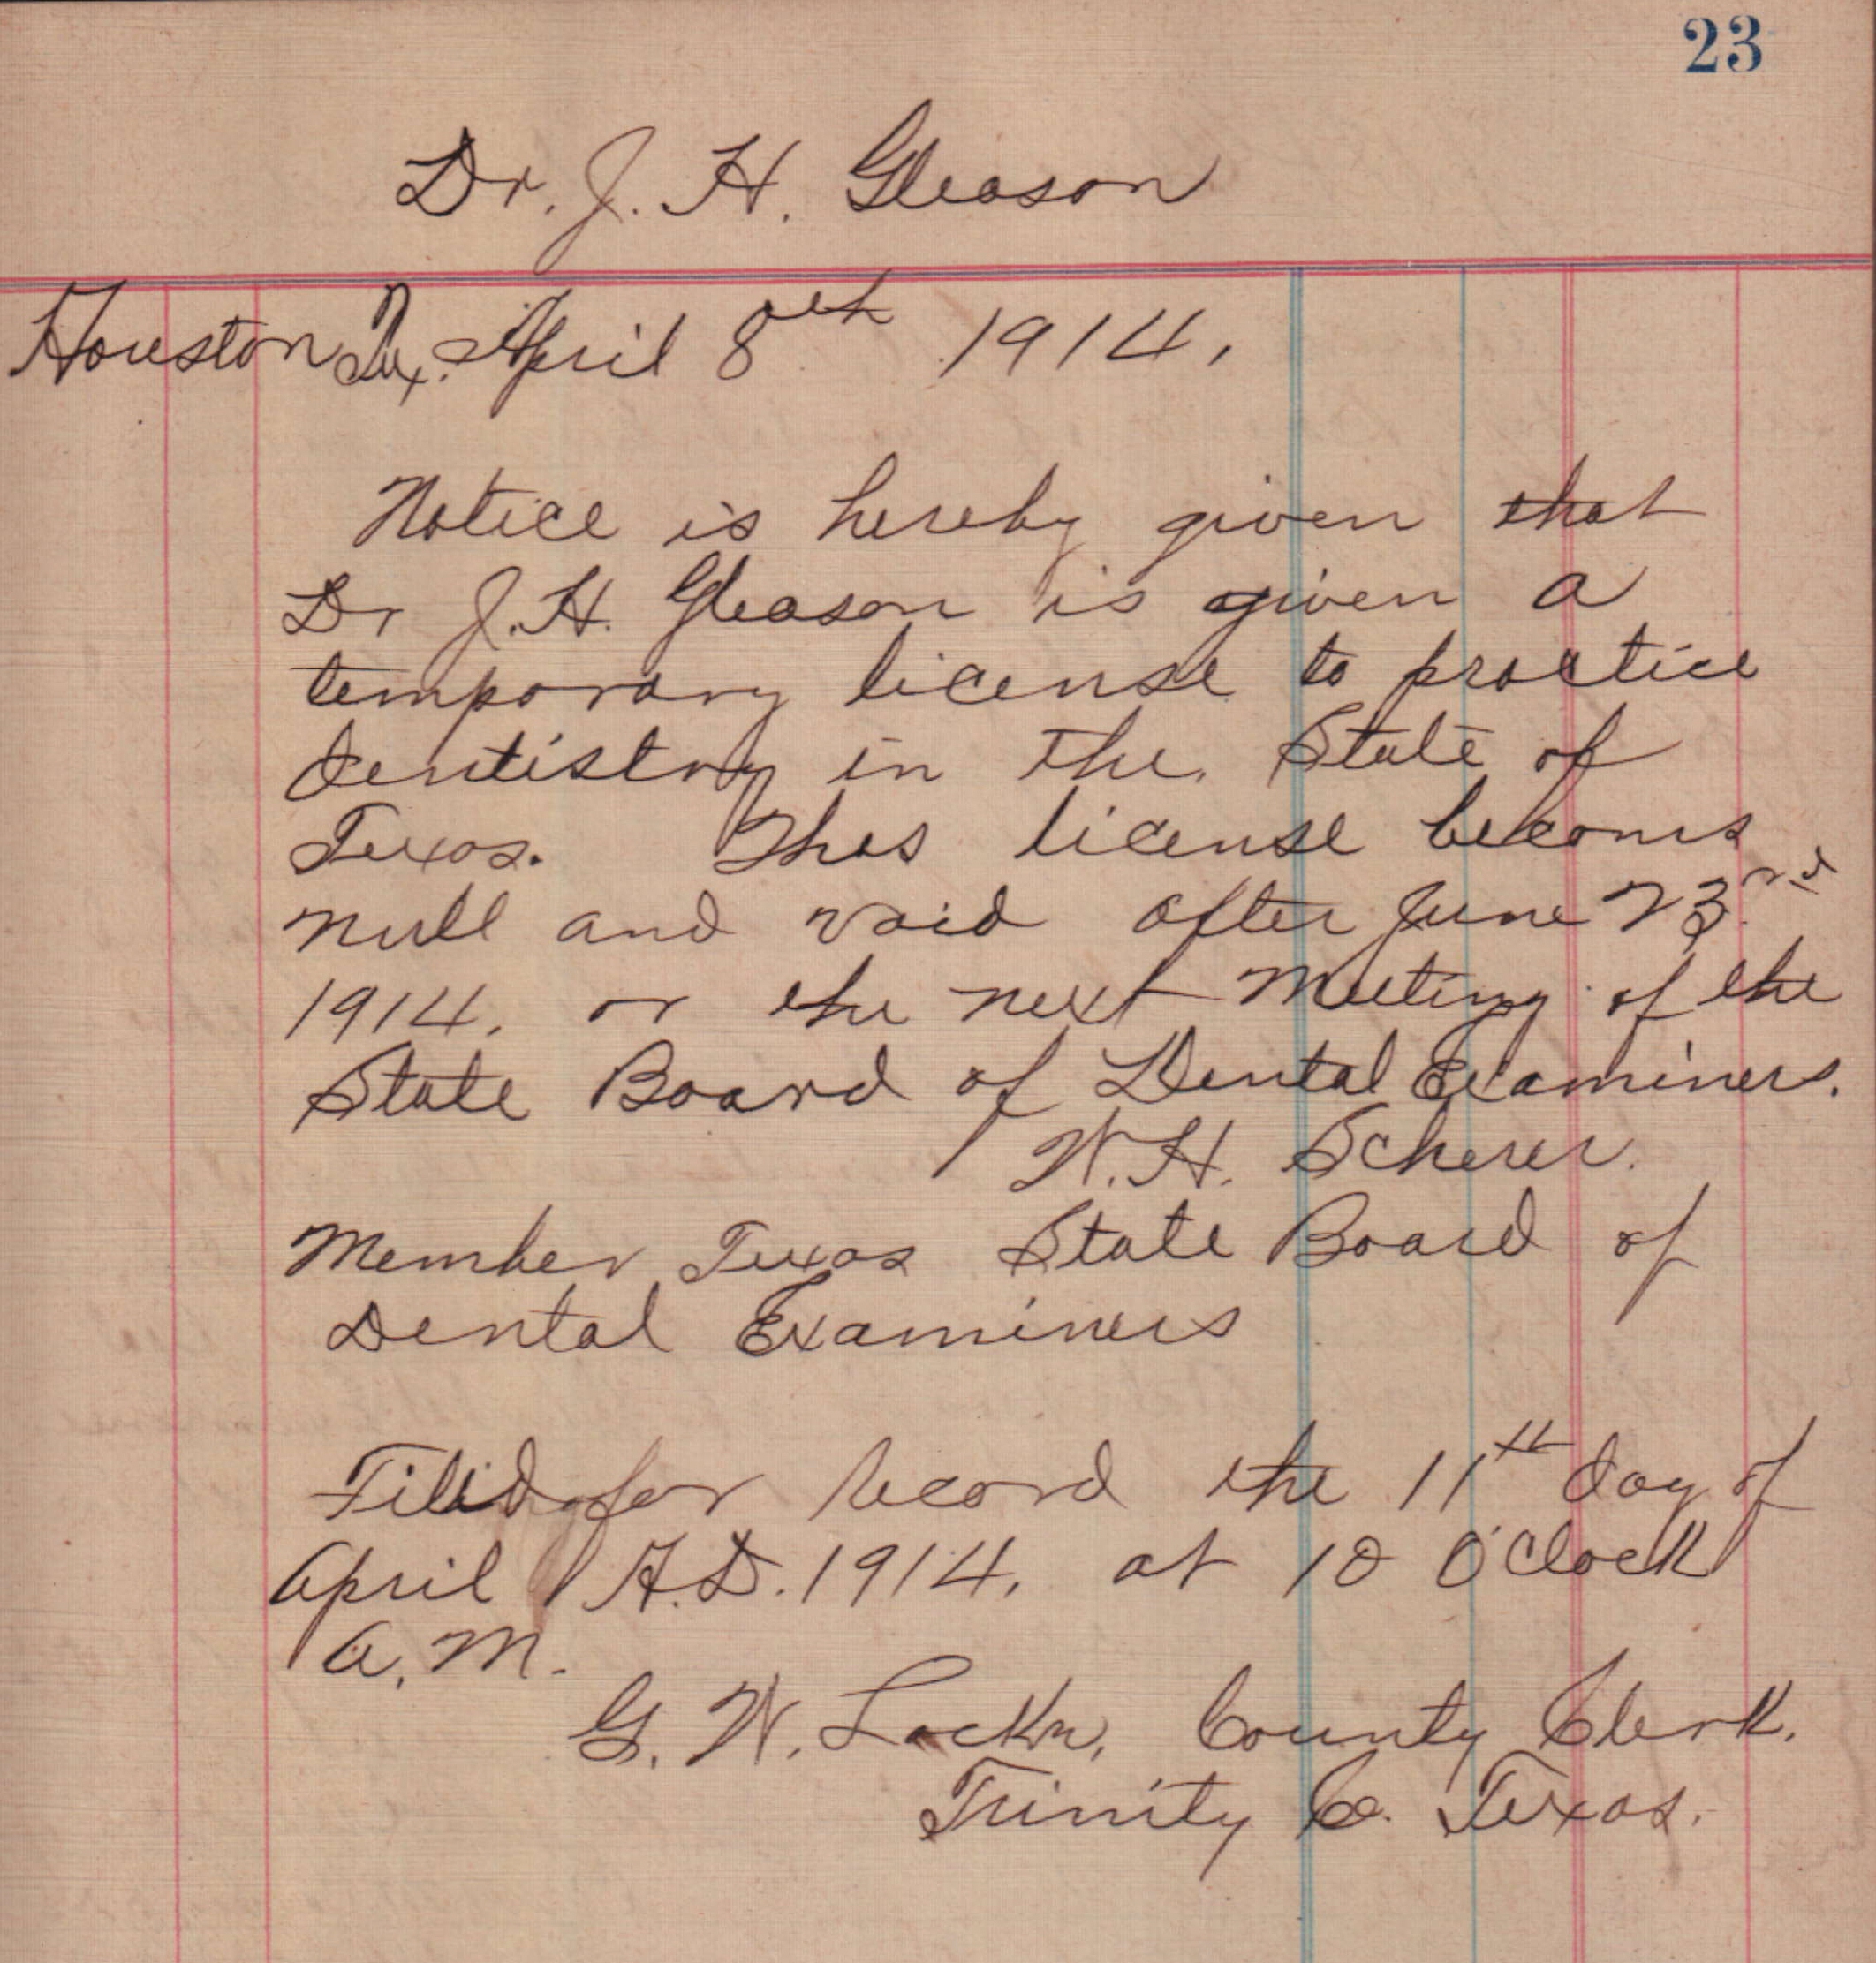 23
Dr. J. H. Gleason
Houston Tex. April 8th 1914,
Notice is hereby given that
Dr J.H. Gleason is given a
temporary license to practice
dentistry in the State of
Texas. This license becomes
null and void after June 23rd
1914, or the next Meeting of the
State Board of Dental Examiners.
W.H. Scherer.
Member Texas State Board of
Dental Examiners
Filed for record the 11th day of
April A.D. 1914, at 10 O'Clock
A.M.
G. W. County Clerk.
Trinity Co. Texas.